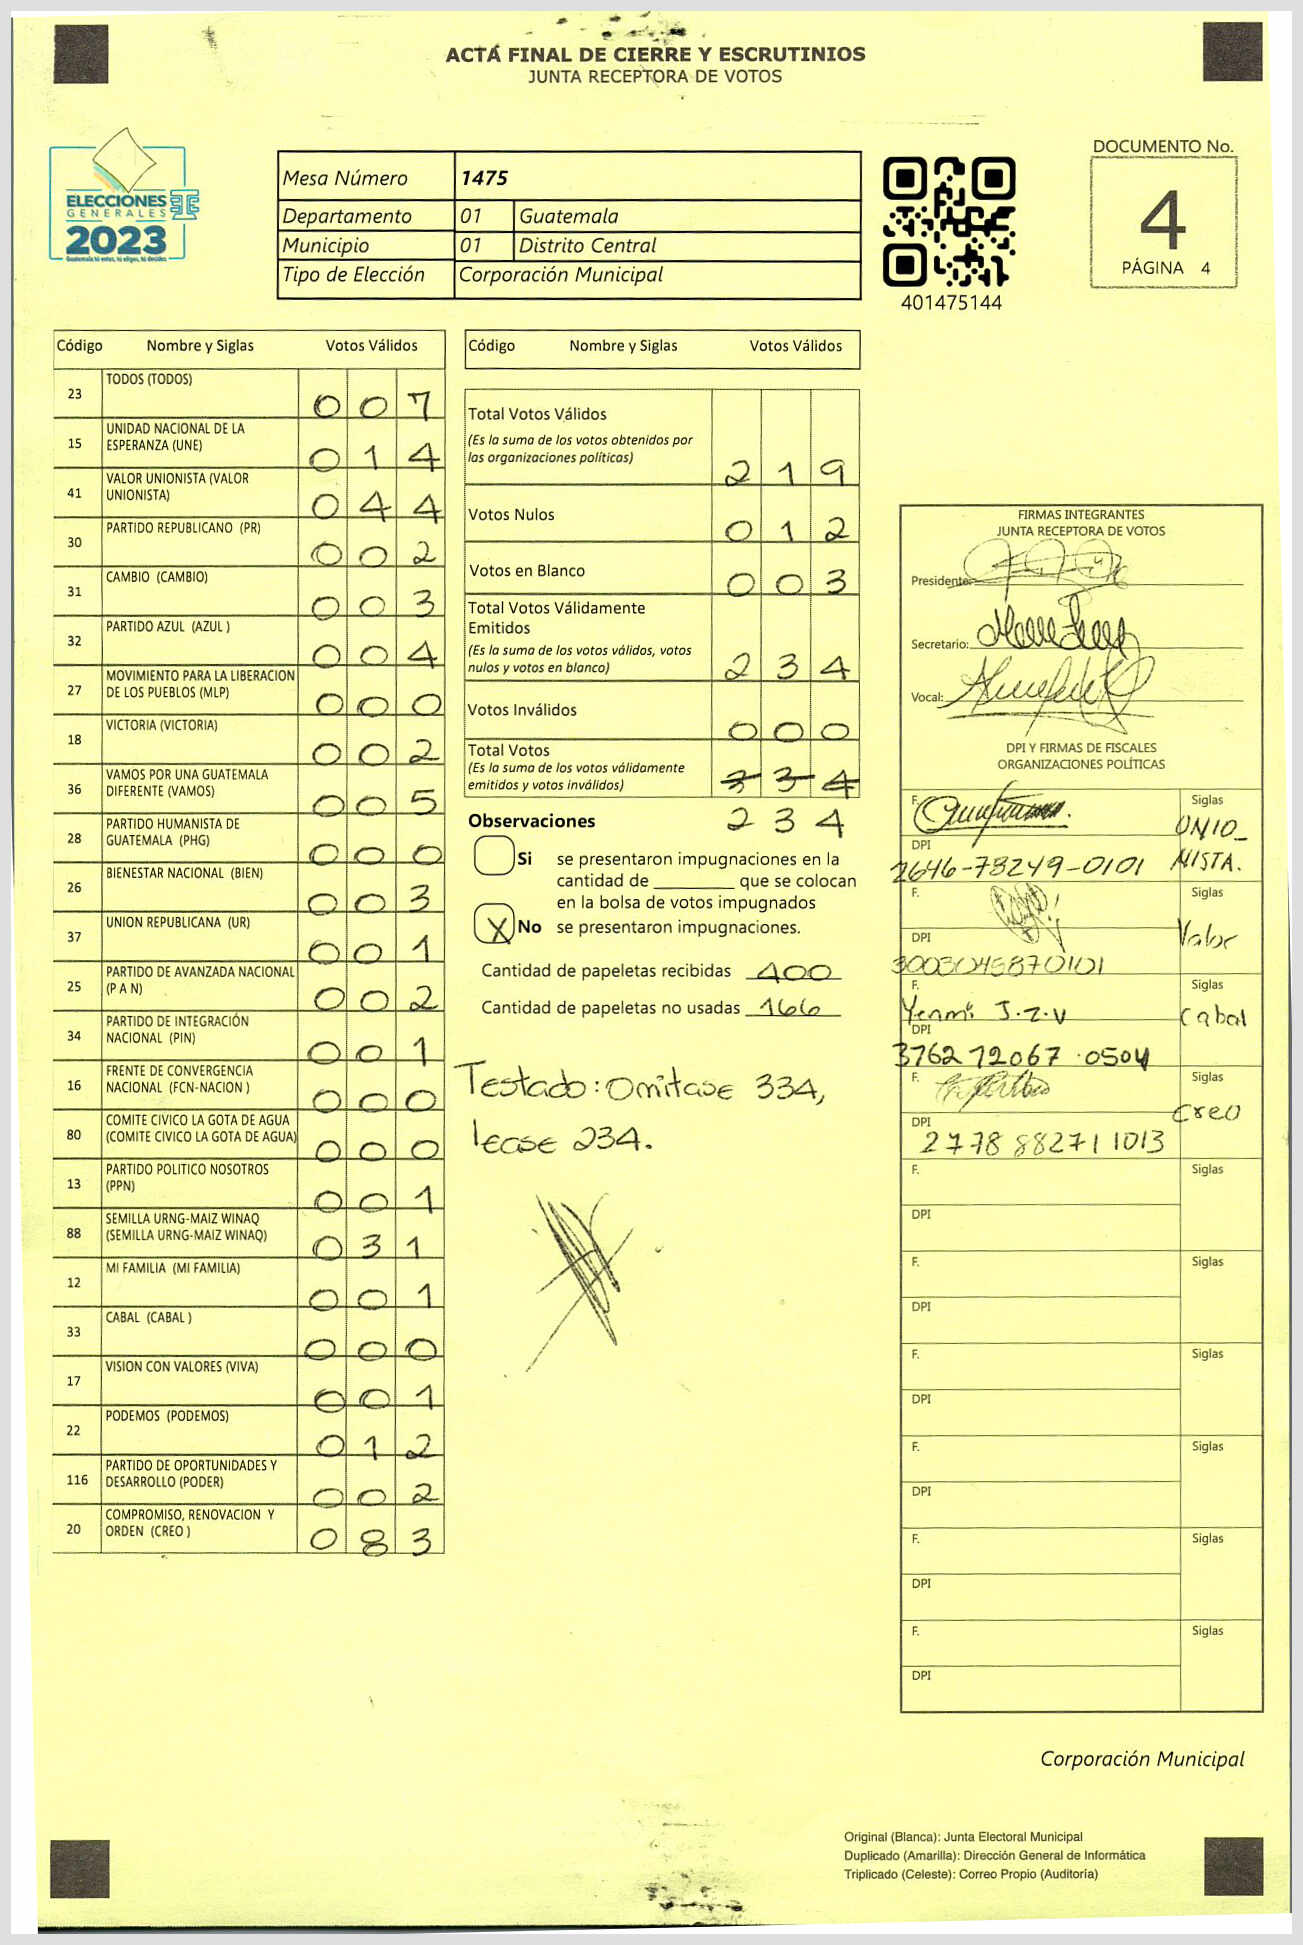 ACTA FINAL DE CIERRE Y ESCRUTINIOS
JUNTA RECEPTORA DE VOTOS
ELECCIONES
GENERALES
2023
Guatemala tú votas, tú eliges, tú decides
Mesa Número 1475
Departamento 01 Guatemala
Municipio 01 Distrito Central
Tipo de Elección Corporación Municipal
401475144
DOCUMENTO No.
4
PÁGINA 4
Código Nombre y Siglas Votos Válidos
23 TODOS (TODOS) 0 0 7
15 UNIDAD NACIONAL DE LA
ESPERANZA (UNE) 0 1 4
41 VALOR UNIONISTA (VALOR
UNIONISTA) 0 4 4
30 PARTIDO REPUBLICANO (PR) 0 0 2
31 CAMBIO (CAMBIO) 0 0 3
32 PARTIDO AZUL (AZUL ) 0 0 4
27 MOVIMIENTO PARA LA LIBERACION
DE LOS PUEBLOS (MLP) 0 0 0
18 VICTORIA (VICTORIA) 0 0 2
36 VAMOS POR UNA GUATEMALA
DIFERENTE (VAMOS) 0 0 5
28 PARTIDO HUMANISTA DE
GUATEMALA (PHG) 0 0 0
26 BIENESTAR NACIONAL (BIEN) 0 0 3
37 UNION REPUBLICANA (UR) 0 0 1
25 PARTIDO DE AVANZADA NACIONAL
(P A N) 0 0 2
34 PARTIDO DE INTEGRACIÓN
NACIONAL (PIN) 0 0 1
16 FRENTE DE CONVERGENCIA
NACIONAL (FCN-NACION ) 0 0 0
80 COMITE CIVICO LA GOTA DE AGUA
(COMITE CIVICO LA GOTA DE AGUA) 0 0 0
13 PARTIDO POLITICO NOSOTROS
(PPN) 0 0 1
88 SEMILLA URNG-MAIZ WINAQ
(SEMILLA URNG-MAIZ WINAQ) 0 3 1
12 MI FAMILIA (MI FAMILIA) 0 0 1
33 CABAL (CABAL ) 0 0 0
17 VISION CON VALORES (VIVA) 0 0 1
22 PODEMOS (PODEMOS) 0 1 2
116 PARTIDO DE OPORTUNIDADES Y
DESARROLLO (PODER) 0 0 2
20 COMPROMISO, RENOVACION Y
ORDEN (CREO ) 0 8 3
Código Nombre y Siglas Votos Válidos
Total Votos Válidos
(Es la suma de los votos obtenidos por
las organizaciones políticas) 2 1 9
Votos Nulos 0 1 2
Votos en Blanco 0 0 3
Total Votos Válidamente
Emitidos
(Es la suma de los votos válidos, votos
nulos y votos en blanco) 2 3 4
Votos Inválidos 0 0 0
Total Votos
(Es la suma de los votos válidamente
emitidos y votos inválidos) 3 3 4
Observaciones 2 3 4
Si se presentaron impugnaciones en la
cantidad de ________ que se colocan
en la bolsa de votos impugnados
X No se presentaron impugnaciones.
Cantidad de papeletas recibidas 400
Cantidad de papeletas no usadas 166
Testado: Omitase 334,
lease 234.
FIRMAS INTEGRANTES
JUNTA RECEPTORA DE VOTOS
Presidente:
Secretario:
Vocal:
DPI Y FIRMAS DE FISCALES
ORGANIZACIONES POLÍTICAS
F. Siglas
UNIO_
NISTA.
DPI
2646-78249-0101
F. Siglas
Valor
DPI
3003045870101
F. Siglas
Yenmi J.Z.V Cabal
DPI
3762 72067 0504
F. Siglas
Creo
DPI
2778 88271 1013
F. Siglas
DPI
F. Siglas
DPI
F. Siglas
DPI
F. Siglas
DPI
F. Siglas
DPI
F. Siglas
DPI
Corporación Municipal
Original (Blanca): Junta Electoral Municipal
Duplicado (Amarilla): Dirección General de Informática
Triplicado (Celeste): Correo Propio (Auditoría)